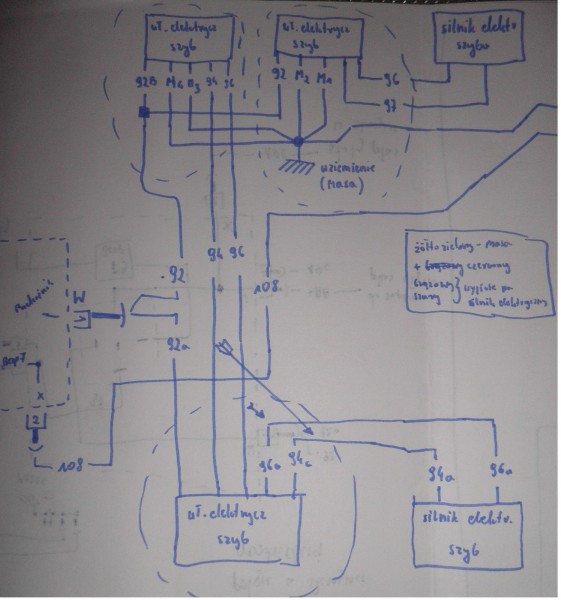 wł. elektrycz
szyb
wł. elektrycz
szyb
silnik elektr
szyba
92B
M4
M3
94
96
92
M2
M1
96
97
uziemienie
(masa)
92
94
96
108
żółtozielony - masa
+ czerwony
brązowy
szary
} wyjście na
silnik elektryczny
W
92a
X
2
108
2
96a
94c
94a
96a
wł. elektrycz
szyb
silnik elektr.
szyb